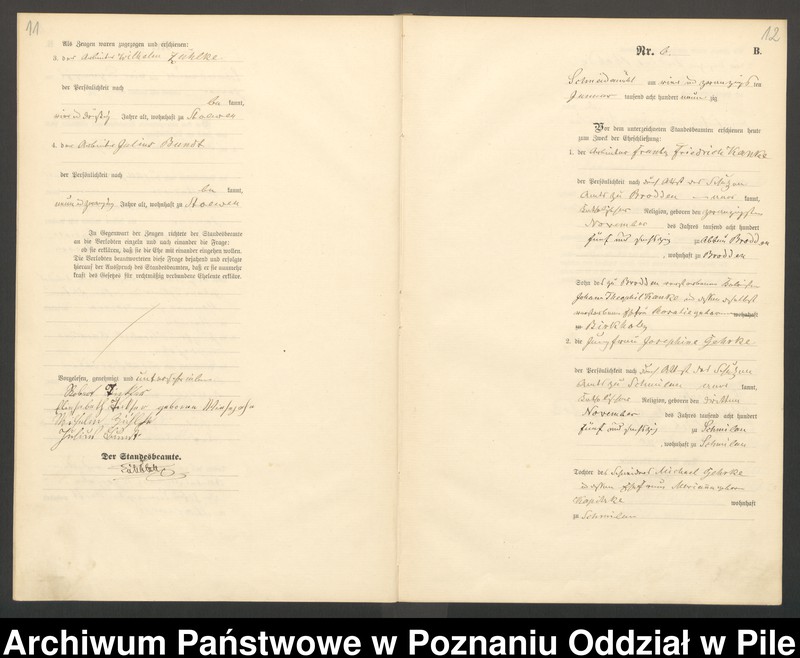 11
Als Zeugen waren zugezogen und erschienen:
3. der Arbeiter Wilhelm Zühlke
der Persönlichkeit nach
be kannt,
Jahre alt, wohnhaft zu Stoewen
4. der Arbeiter Julius Bundt
der Persönlichkeit nach
be kannt,
Jahre alt, wohnhaft zu Stoewen
In Gegenwart der Zeugen richtete der Standesbeamte
an die Verlobten einzeln und nach einander die Frage:
ob sie erklären, daß sie die Ehe mit einander eingehen wollen.
Die Verlobten beantworteten diese Frage bejahend und erfolgte
hierauf der Ausspruch des Standesbeamten, daß er sie nunmehr
kraft des Gesetzes für rechtmäßig verbundene Eheleute erkläre.
Vorgelesen, genehmigt und unterschrieben
Robert
Elisabeth geborene
Wilhelm Zühlke
Julius Bundt
Der Standesbeamte.
12
Nr. 6. B.
Schneidemühl am vier und zwanzigsten
Januar tausend acht hundert neun zig
Vor dem unterzeichneten Standesbeamten erschienen heute
zum Zweck der Eheschließung:
1. der Arbeiter Frantz Friedrich Kanke
der Persönlichkeit nach durch Attest des
Amts zu Brodden kannt,
katholischer Religion, geboren den zwanzigsten
November des Jahres tausend acht hundert
fünf und sechszig zu Abbau Brodden
, wohnhaft zu Brodden
Sohn des zu Brodden verstorbenen
Johann Theophil Kanke und dessen daselbst
verstorbenen Ehefrau wohnhaft
zu
2. die Jungfrau Josephine Gehrke
der Persönlichkeit nach durch Attest des
Amts zu Schmilau kannt,
katholischer Religion, geboren den dritten
November des Jahres tausend acht hundert
fünf und sechszig zu Schmilau
, wohnhaft zu Schmilau
Tochter des Michael Gehrke
und dessen Ehefrau
wohnhaft
zu Schmilau
Archiwum Państwowe w Poznaniu Oddział w Pile